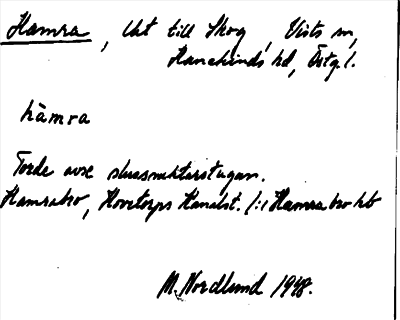 Hamra, Uht till Skog, Vists sn,
Hanekinds hd, Östg l.
hàmra
Torde avse slussvaktarstugan.
Hamrabro, Hovetorps Kanalst. /: Hamra bro kb
M. Nordlund 1948.